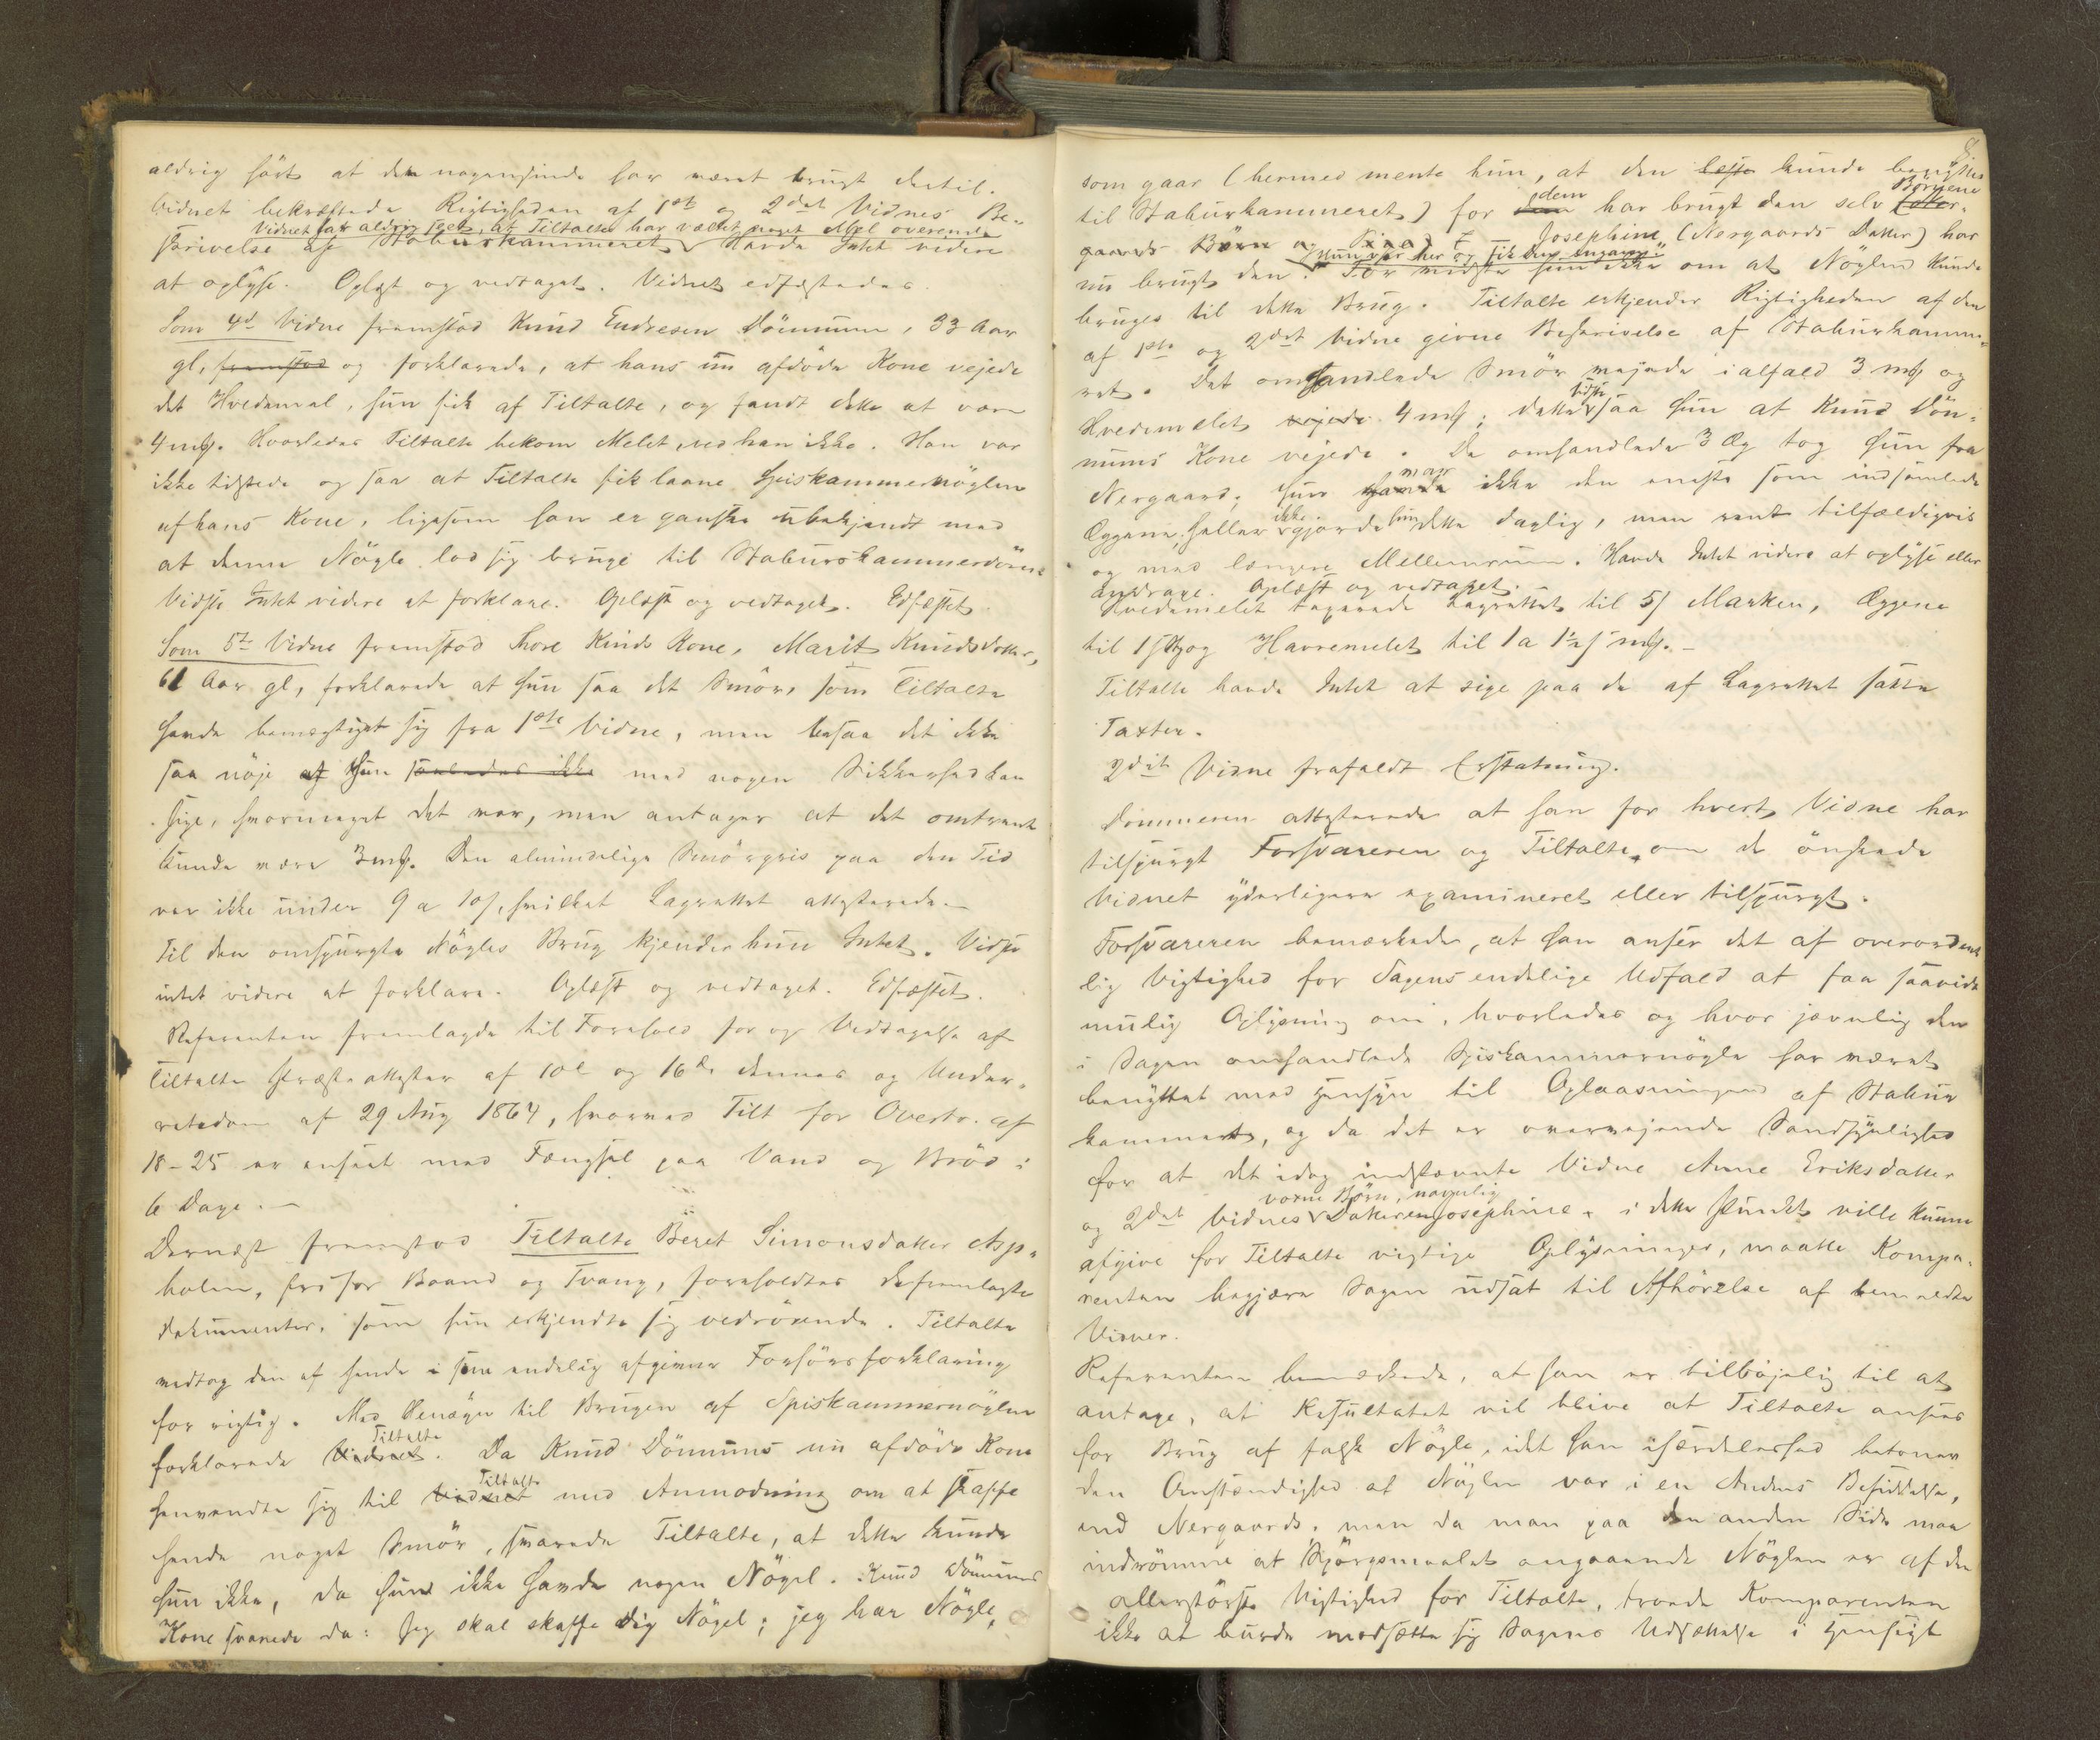 aldrig hørt at den nogensinde har været brugt dertil.
Vidnet bekræftede Rigtigheden af 1ste og 2det Vidnes Be-
Vidnet har aldrig seet, at Tiltalte har vældet noget Mel overende
skrivelse af Staburskammeret. Havde Intet videre
at oplyse. Oplæst og vedtaget. Vidnet edfæstedes.
Som 4d Vidne fremstod Knud Endresen Dönnum, 33 Aar
gl, fremstod og forklarede, at hans nu afdöde Kone vejede
det Hvedemel, hun fik af Tiltalte, og fandt dette at være
4 mk. Hvorledes Tiltalte bekom Melet, ved han ikke. Han var
ikke tilstede og saa at Tiltalte fik laane Spiskammernöglen
af hans Kone, ligesom han er ganske ubekjendt med
at denne Nögle lod sig bruge til Staburskammerdören
Vidste Intet videre at forklare. Oplæst og vedtaget. Edfæstet.
Som 5te Vidne fremstod Thore Kinds Kone, Marit Knudsdatter,
61 Aar gl, forklarede at hun saa det Smör, som Tiltalte
havde bemægtiget sig fra 1ste Vidne, men besaa det ikke
saa nöje at hun saaledes ikke med nogen Sikkerhed kan
sige, hvormeget det var, men antager at det omtrent
kunde være 3 mk. Den almindelige Smörpris paa den Tid
var ikke under 9 a 10 s, hvilket Lagrettet attesterede.
Til den omspurgte Nögles Brug kjender hun Intet. Vidste
intet videre at forklare. Oplæst og vedtaget. Edfæstet.
Referenten fremlagde til Forehold for og Vedtagelse af
Tiltalte Præsteattester af 10de og 16de dennes og Under-
retsdom af 29 Aug 1864, hvorved Tilt for Overtr. af
18-25 er anseet med Fængsel paa Vand og Bröd i
6 Dage.
Dernæst fremstod Tiltalte Beret Simonsdatter Asp-
holen, fri for Baand og Tvang, foreholdtes de fremlagte
Dokumenter, som hun erkjendte sig vedrörende. Tiltalte
vedtog den af hende i sin endelig afgivne Forhörsforklaring
for rigtig. Med Hensyn til Brugen af Spiskammernöglen
forklarede Vidnet Tiltalte. Da Knud Dönnums nu afdöde Kone
henvendte sig til Vidnet Tiltalte med Anmodning om at skaffe
hende noget Smör, svarede Tiltalte, at dette kunde
hun ikke, da hun ikke havde nogen Nögel. Knud Dönnums
Kone svarede da: Jeg skal skaffe Dig Nögel; jeg har Nögle,
som gaar (hermed mente hun, at den kunde benyttes
til Staburskammeret) for dem har brugt den selv Börnene
gaards Börn og Josephine (Nergaards Datter) har
nu brugt den. "Hun var her og fik den engang." Før vidste hun ikke om at Nöglen kunde
bruges til dette Brug. Tiltalte erkjender Rigtigheden af den
af 1ste og 2det Vidne givne Beskrivelse af Staburskamme-
ret. Det omhandlede Smör vejede ialfald 3 mk og
Hvedemelet vejede 4 mk; dette sidste saa hun at Knud Dön-
nums Kone vejede. De omhandlede 3 Æg tog hun fra
Nergaard; hun havde var ikke den eneste som indsamlede
Æggene, heller ikke gjorde hun dette daglig, men rent tilfældigvis
og med længere Mellemrum. Havde Intet videre at oplyse eller
andrage. Oplæst og vedtaget.
Hvedemelet taxerede Lagrettet til 5 s Marken, Æggene
til 1 s St og Havremelet til 1 a 1½ s mk. -
Tiltalte havde Intet at sige paa de af Lagrettet satte
Taxter.
2det Vidne frafaldt Erstatning.
Dommeren attesterede at han for hvert Vidne har
tilspurgt Forsvareren og Tiltalte, om de önskede
Vidnet yderligere examineret eller tilspurgt.
Forsvareren bemærkede, at han anser det af overordent
lig Vigtighed for Sagens endelige Udfald at faa saavidt
mulig Oplysning om, hvorledes og hvor jevnlig den
i Sagen omhandlede Spiskammernögle har været
benyttet med Hensyn til Oplaasningen af Stabur
kammeret, og da det er overvejende Sandsynlighed
for at det idag indstævnte Vidne Anne Eriksdatter
og 2det Vidnes voxne Börn, navnlig Datteren Josephine, i dette Punkt ville kunne
afgive for Tiltalte vigtige Oplysninger, maatte Kompa-
renten begjære Sagen udsat til Afhörelse af bemeldte
Vidner.
Referenten bemærkede, at han er tilböjelig til at
antage, at Resultatet vil blive at Tiltalte ansees
for Brug af falsk Nögle, idet han isærdeleshed betoner
den Omstændighed at Nöglen var i en Andens Besiddelse,
end Nergaards, men da man paa den anden Side maa
indrömme at Spörgsmaalet angaaende Nöglen er af den
allerstörste Vigtighed for Tiltalte, troede Komparenten
ikke at burde modsætte sig Sagens Udsættelse i Hensigt